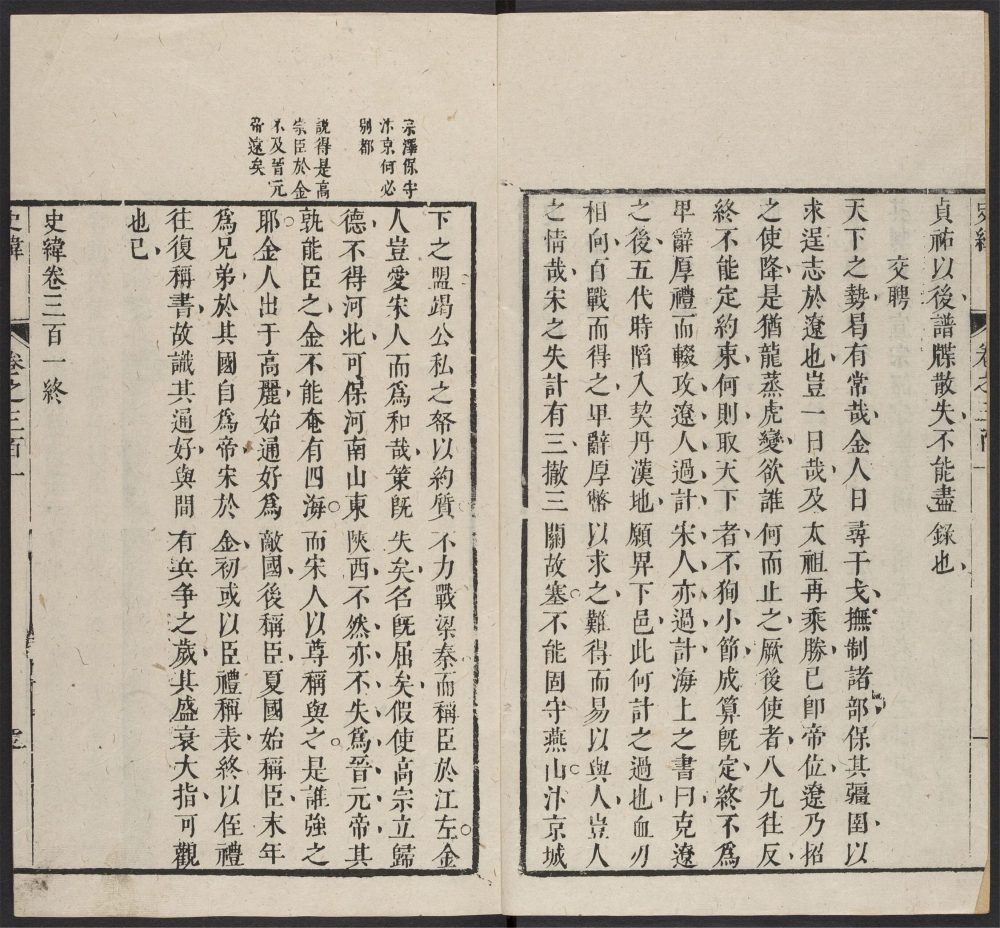 貞祐以後譜牒散失不能盡錄也
交聘
天下之勢曷有常哉金人日尋干戈撫制諸部保其疆圉以
求逞志於遼也豈一日哉及太祖再乘勝已卽帝位遼乃招
之使降是猶龍蒸虎變欲誰何而止之厥後使者八九往反
終不能定約束何則取天下者不狥小節成算旣定終不爲
卑辭厚禮而輟攻遼人過計宋人亦過計海上之書曰克遼
之後五代時䧟入契丹漢地願畀下邑此何計之過也血刃
相向百戰而得之卑辭厚幣以求之難得而易以與人豈人
之情哉宋之失計有三撤三關故塞不能固守燕山汴京城
宗澤保守
汴京何必
别都
說得是高
宗臣於金
不及晉元
帝遠矣
下之盟竭公私之帑以約質不力戰梁秦而稱臣於江左金
人豈愛宋人而爲和哉策旣失矣名旣屈矣假使高宗立歸
德不得河北可保河南山東陜西不然亦不失爲晉元帝其
孰能臣之金不能奄有四海而宋人以尊稱與之是誰強之
耶金人出于高麗始通好爲敵國後稱臣夏國始稱臣末年
爲兄弟於其國自爲帝宋於金初或以臣禮稱表終以侄禮
往復稱書故識其通好與間有兵爭之歲其盛衰大指可觀
也已
史緯卷三百一終
史緯
卷之三百一